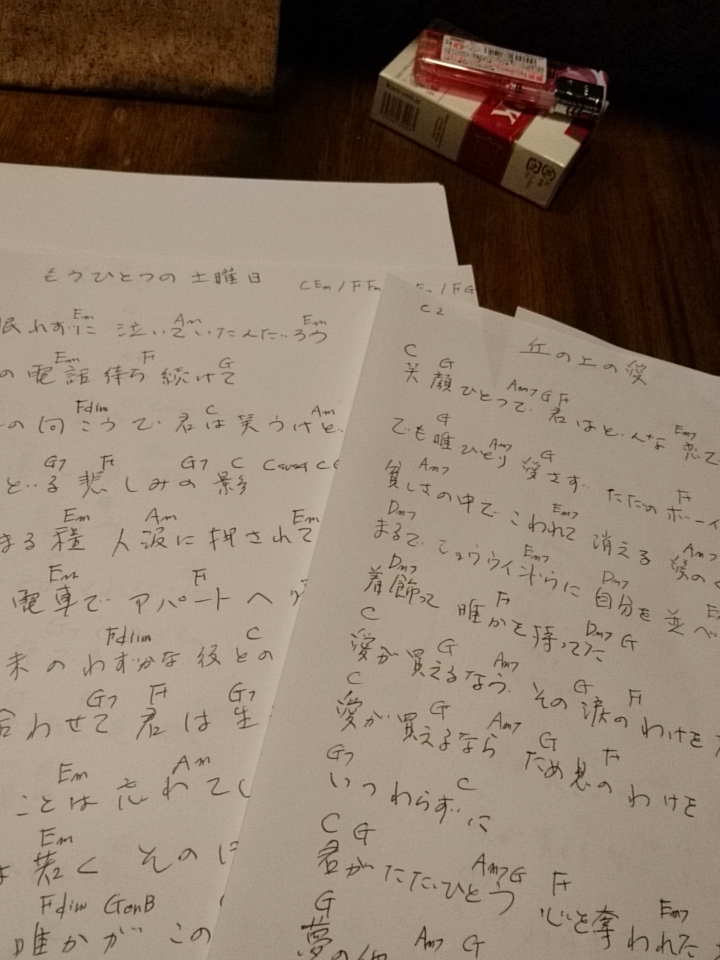 もうひとつの 土曜日 C Em / F Fm
Em / F G
Em Am Em
眠れずに 泣いていたんだろう
Em F G
の 電話 待ち 続けて
Fdim C Am
の 向こうで 君は 笑うけど
G7 F G7 C Csus4 C
悲しみの 影
Em Am Em
まる 程 人波に 押されて
Em F
電車で アパートへ
Fdim C
末 のわずかな 彼との
G7 F G7
合わせて 君 は 生
Em Am
ことは 忘れて
Em
は 若く その
Fdim GonB
誰かが この
C2
丘の上の愛
C G Am7 G F Em7
笑顔ひとつで 君はどんな 恋で
G Am7 G F
でも 誰ひとり 愛さず ただの ボーイ
Am7 Em7 Am7
貧しさの中で こわれて 消える 愛の
Dm7 Em7 Dm7 Em
まるで ショウウインドウに 自分を 並べ
Dm7 F Dm7 G
着飾って 誰かを 待ってた
C G Am7 G F
愛が 買えるなら その 涙の わけを
C G Am7 G F
愛が 買えるなら ため息の わけを
G7 C
いつわらずに
C G Am7 G F Em7
君が ただひとり 心を 奪われた
G Am7 G
夢の